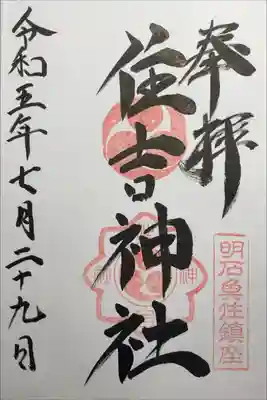 奉拝
明石魚住鎮座
住吉神社
令和五年七月二十九日